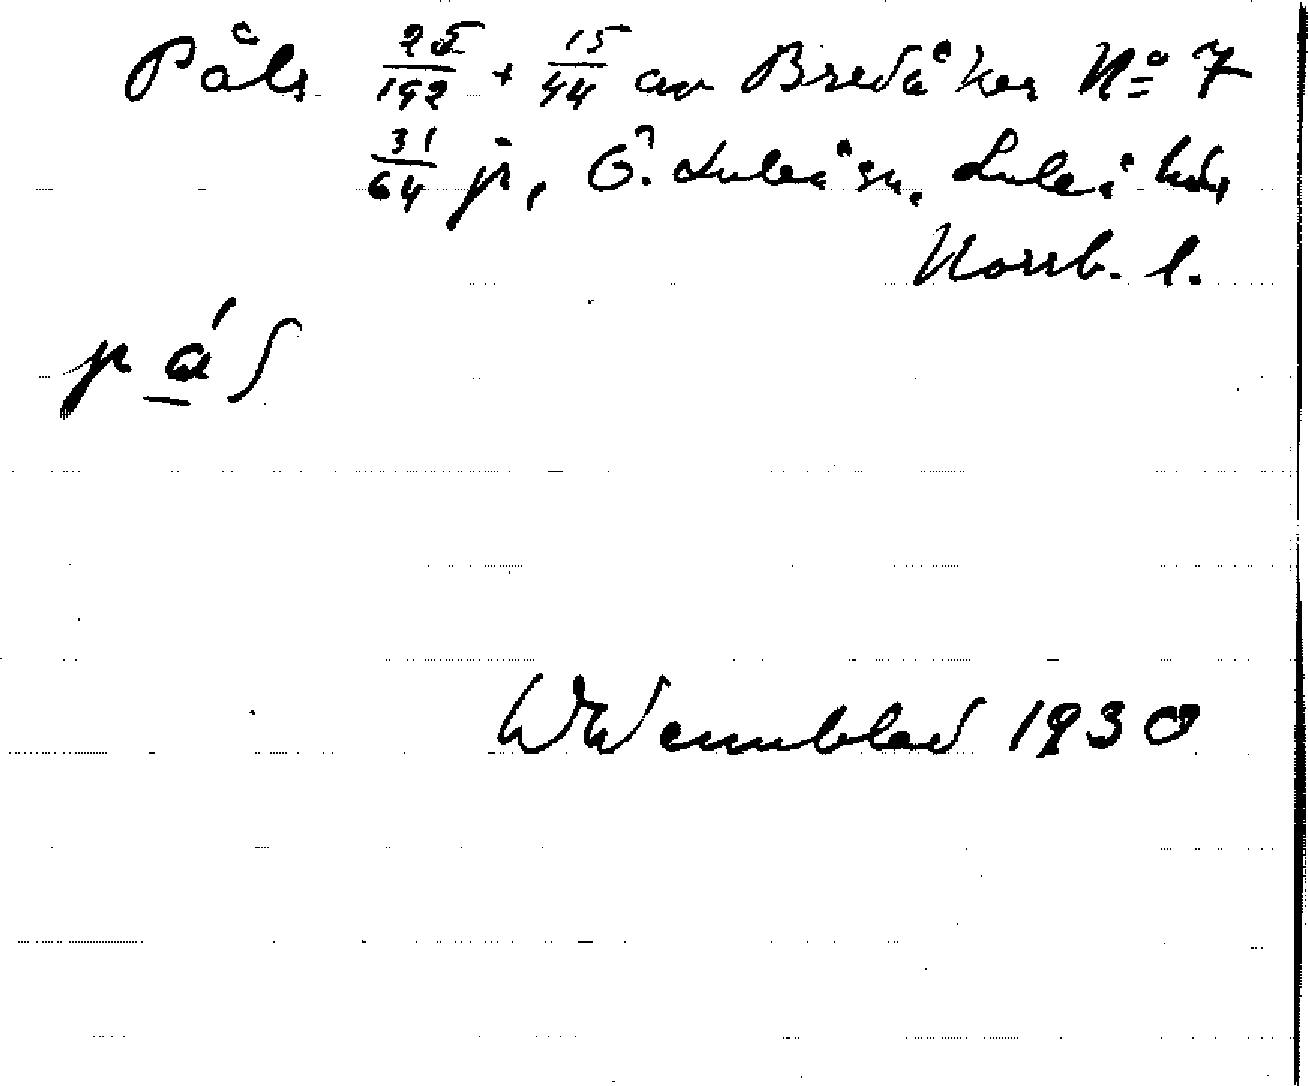 Påls 25/192 + 15/44 av Bredåker No 7
31/64 jr, Ö. Luleå sn, Luleå
Norrb. l.
pǻʃ
WWennblad 1930